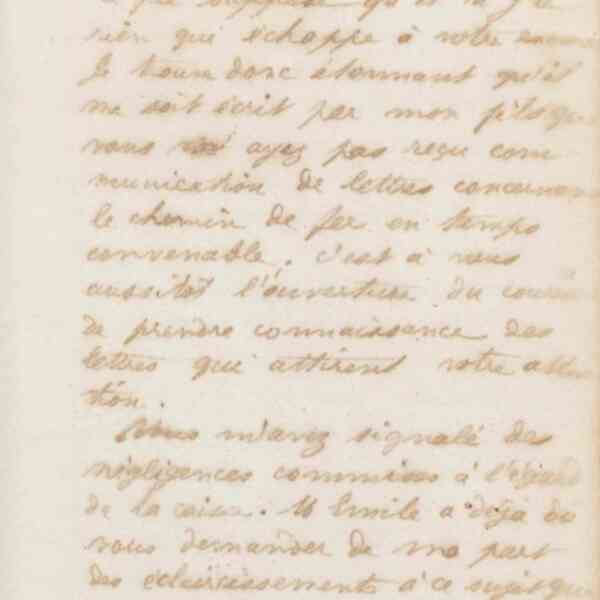 rien qui échappe à votre
Je trouve donc étonnant qu'il
me soit écrit par mon fils que
vous ayez pas reçu com
munication de lettres concernant
le chemin de fer en temps
convenable. c'est à vous
aussitôt l'ouverture du courrier
de prendre connaissance des
lettres qui attirent votre atten
tion.
Vous m'avez signalé des
négligences commises à l'égard
de la caisse. M Emile a déjà dû
vous demander de ma part
des éclaircissements à ce sujet que